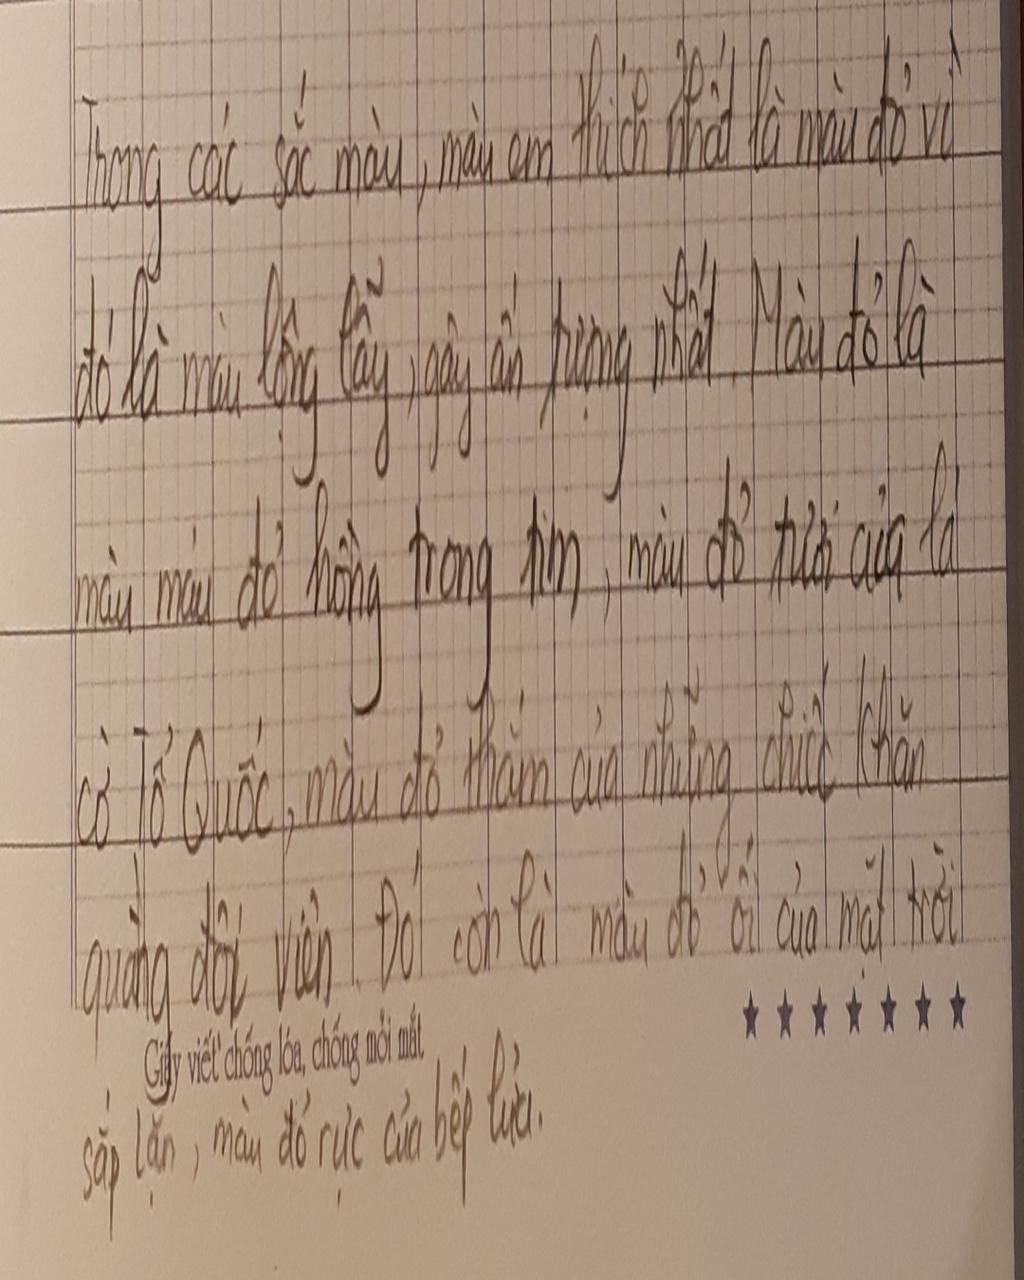 Trong các sắc màu, màu em thích nhất là màu đỏ vì
đó là màu lộng lẫy, gây ấn tượng nhất. Màu đỏ là
màu máu đỏ hồng trong tim, màu đỏ tươi của lá
cờ Tổ Quốc, màu đỏ thắm của những chiếc khăn
quàng đội viên. Đó còn là màu đỏ ối của mặt trời
Giấy viết chống lóa, chống mỏi mắt
sắp lặn, màu đỏ rực của bếp lửa.